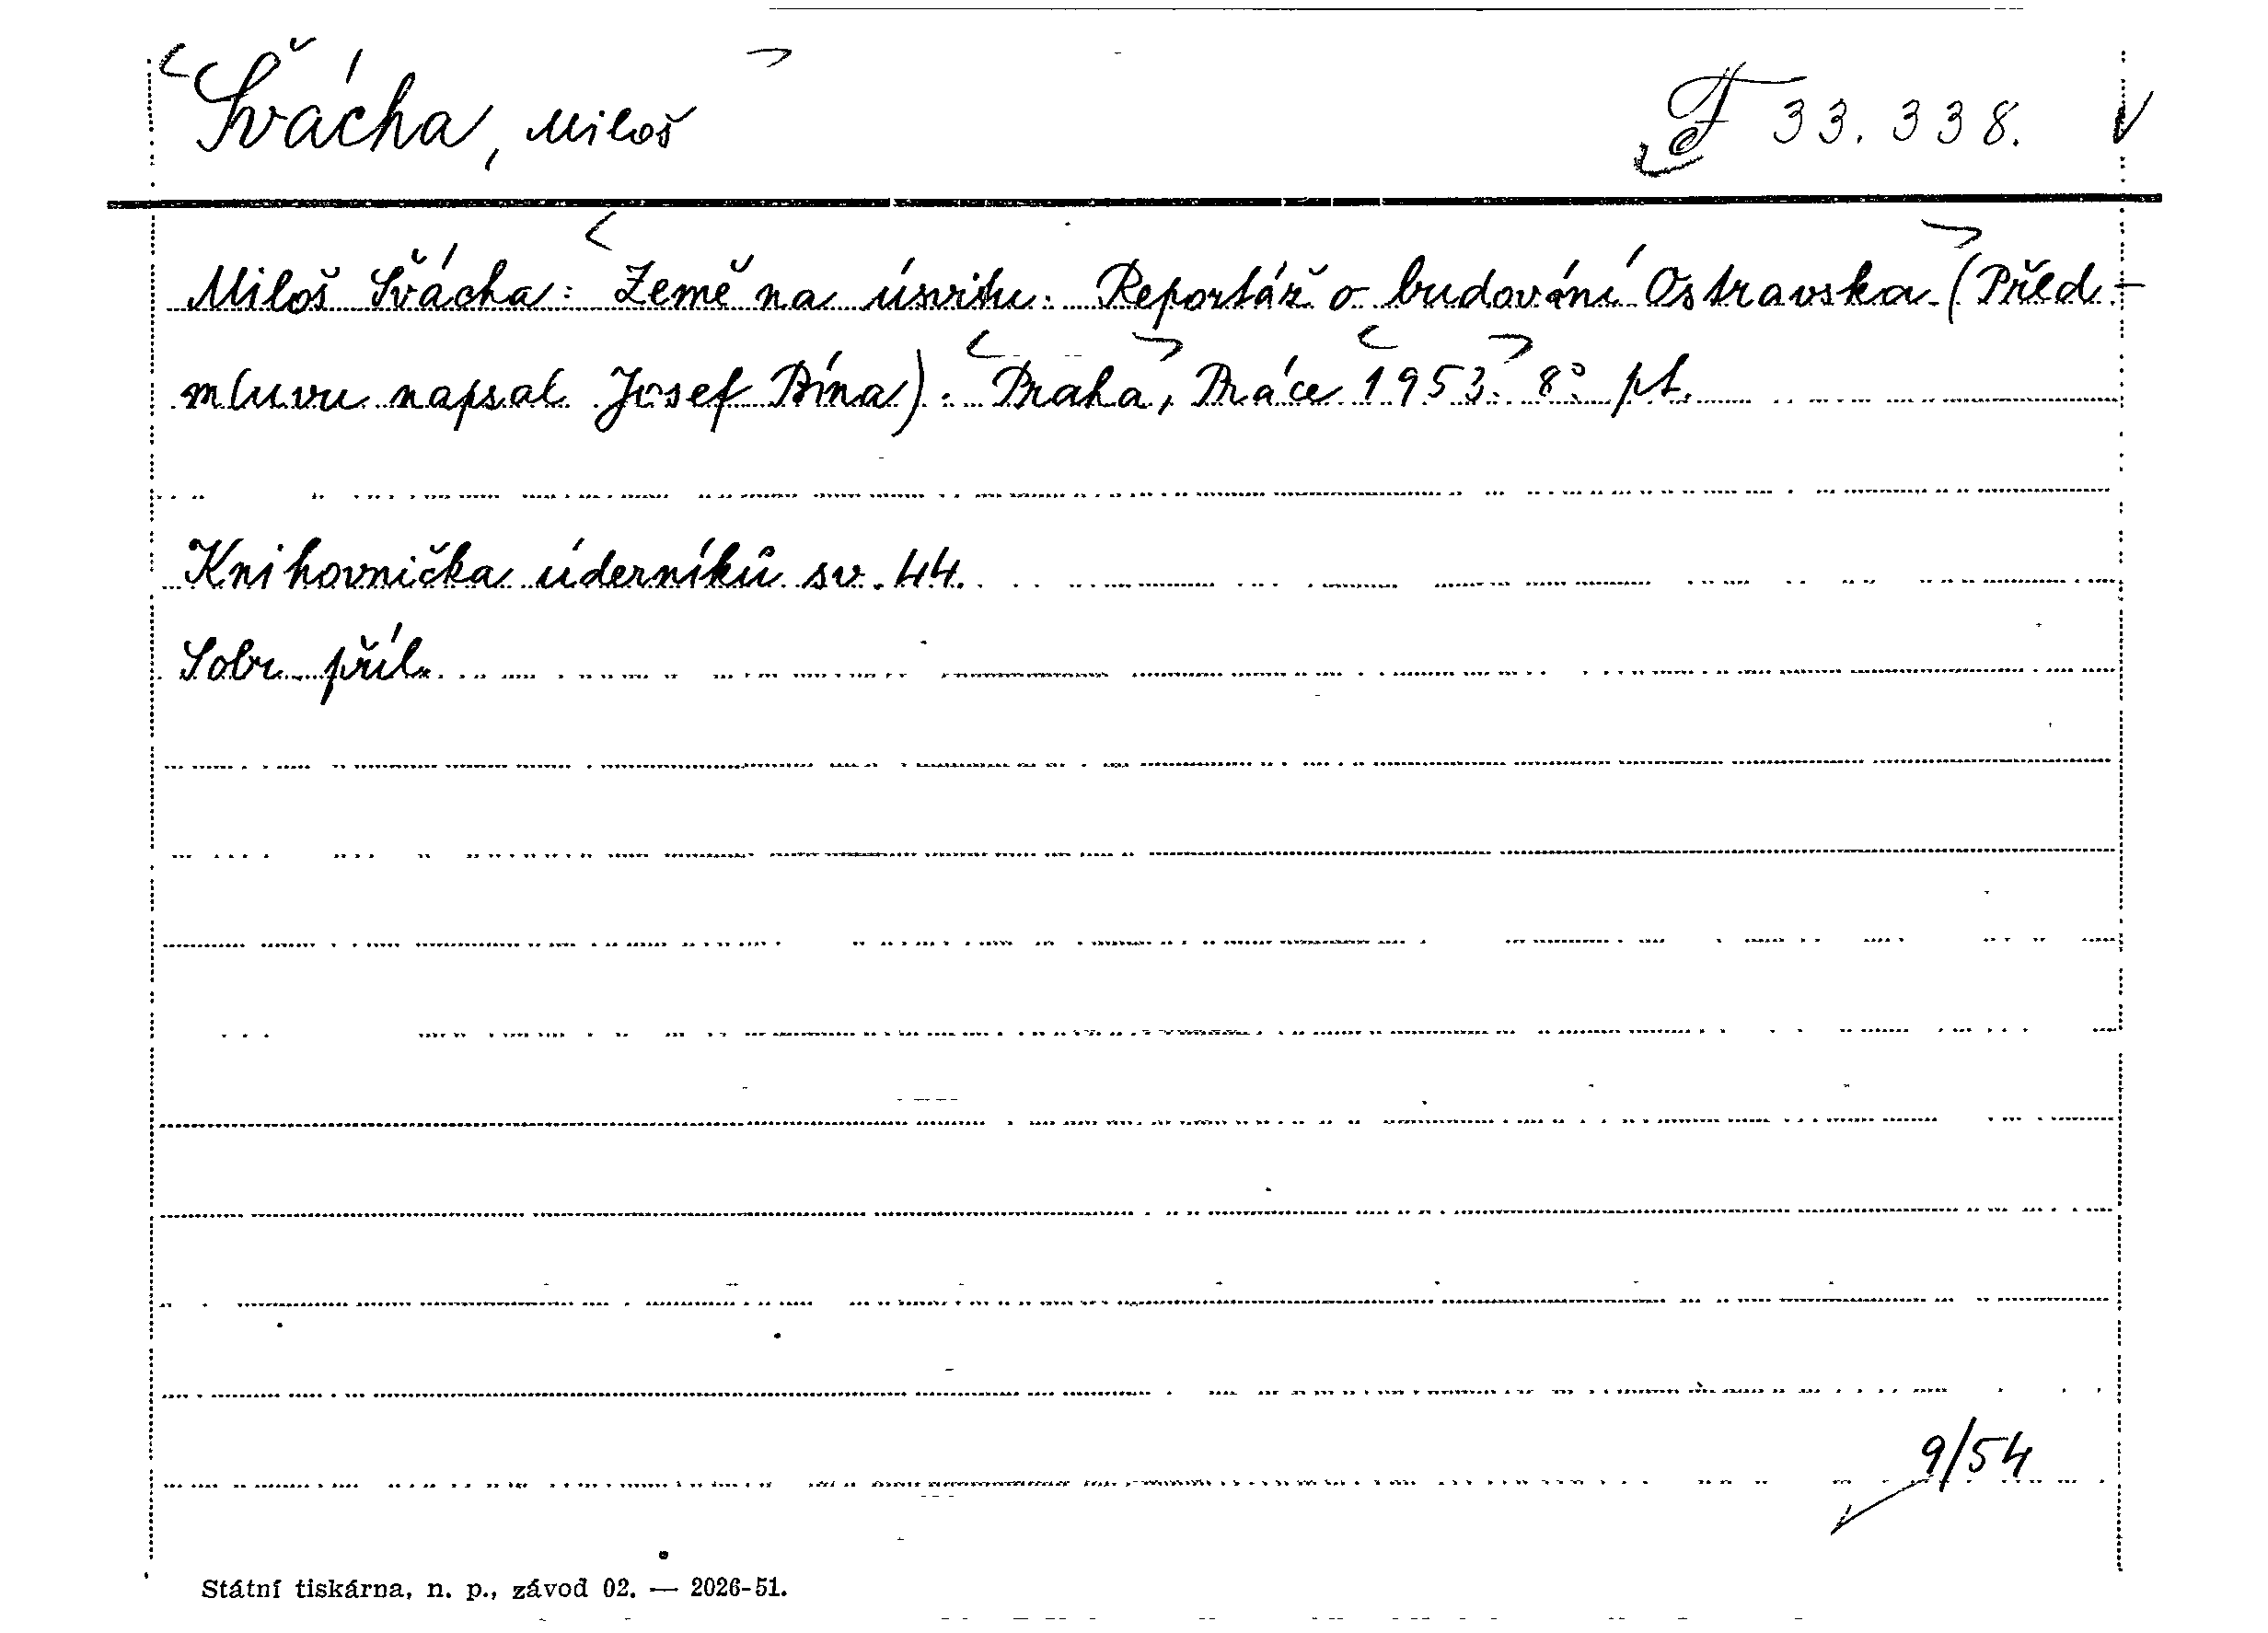 Švácha, Miloš F 33.338. V
Miloš Švácha: Země na úsvitu. Reportáž o budování Ostravska. (Před-
mluvu napsal Josef Bína). Praha, Práce 1953. 8° pt.
Knihovnička úderníků sv. 44.
Sobr. příl.
9/54
Státní tiskárna, n. p., závod 02. — 2026-51.